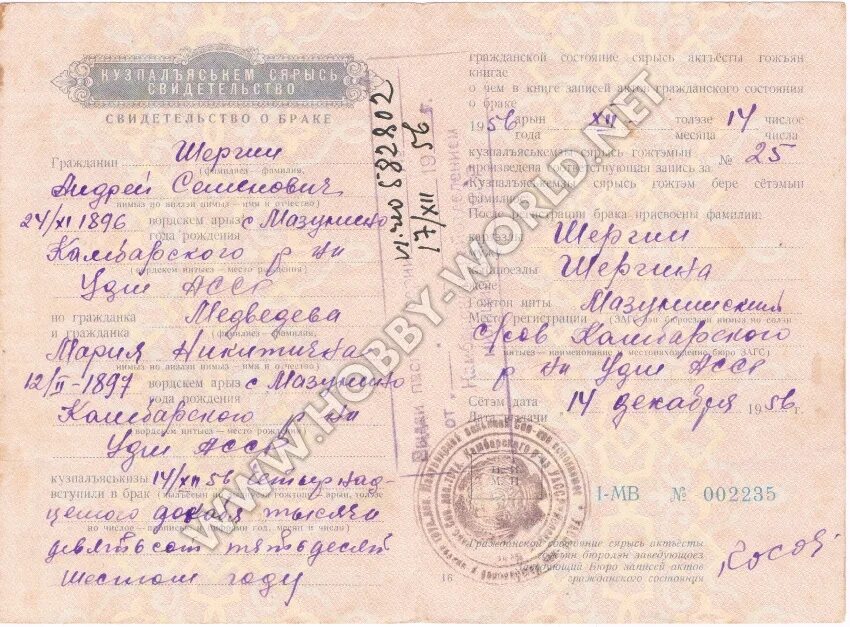 КУЗПАЛЪЯСЬКЕМ СЯРЫСЬ
СВИДЕТЕЛЬСТВО
СВИДЕТЕЛЬСТВО О БРАКЕ
Гражданин Шергин
(фамилиез — фамилия,
Андрей Семенович
нимыз но имя и отчество)
24/XI 1896 вордскем арыз с Мазунино
года рождения
Камбарского р-на
(вордскем интыез — место рождения)
Удм АССР
но гражданка Медведева
и гражданка (фамилиез — фамилия,
Мария Никитична
нимыз но имя и отчество)
12/II-1897 вордскем арыз с Мазунино
года рождения
Камбарского р-на
вордскем интыез — место рождения)
Удм АССР
кузпалъяськизы 14/XII 56 четырнад
вступили в брак
цатого декабря тысяча
девятьсот пятьдесят
шестом году
гражданской состояние сярысь актъёсты гожъян
книгае
о чем в книге записей актов гражданского состояния
о браке
1956 арын XII толэзе 14 числое
года месяца числа
кузпалъяськемзы сярысь гожтэмын № 25
произведена соответствующая запись за
Кузпалъяськемзы сярысь гожтэм бере сётэмын
фамилия
После регистрации брака присвоены фамилии:
Шергин
Шергина
жене
Гожтон инты Мазунинский
Место регистрации
с/сов Камбарского
интыез — наименование и местонахождение бюро ЗАГС)
р-на Удм АССР
Сётэм дата
Дата выдачи 14 декабря 1956 г.
VI-НЮ 582802
17/XII 56
Выдан
195 г.
отделением
от
М. П.
I-МВ № 002235
Гражданской состояние сярысь актъёсты
бюроlэн заведующоез
Заведующий Бюро записей актов
гражданского состояния
16
WWW.HOBBY-WORLD.NET